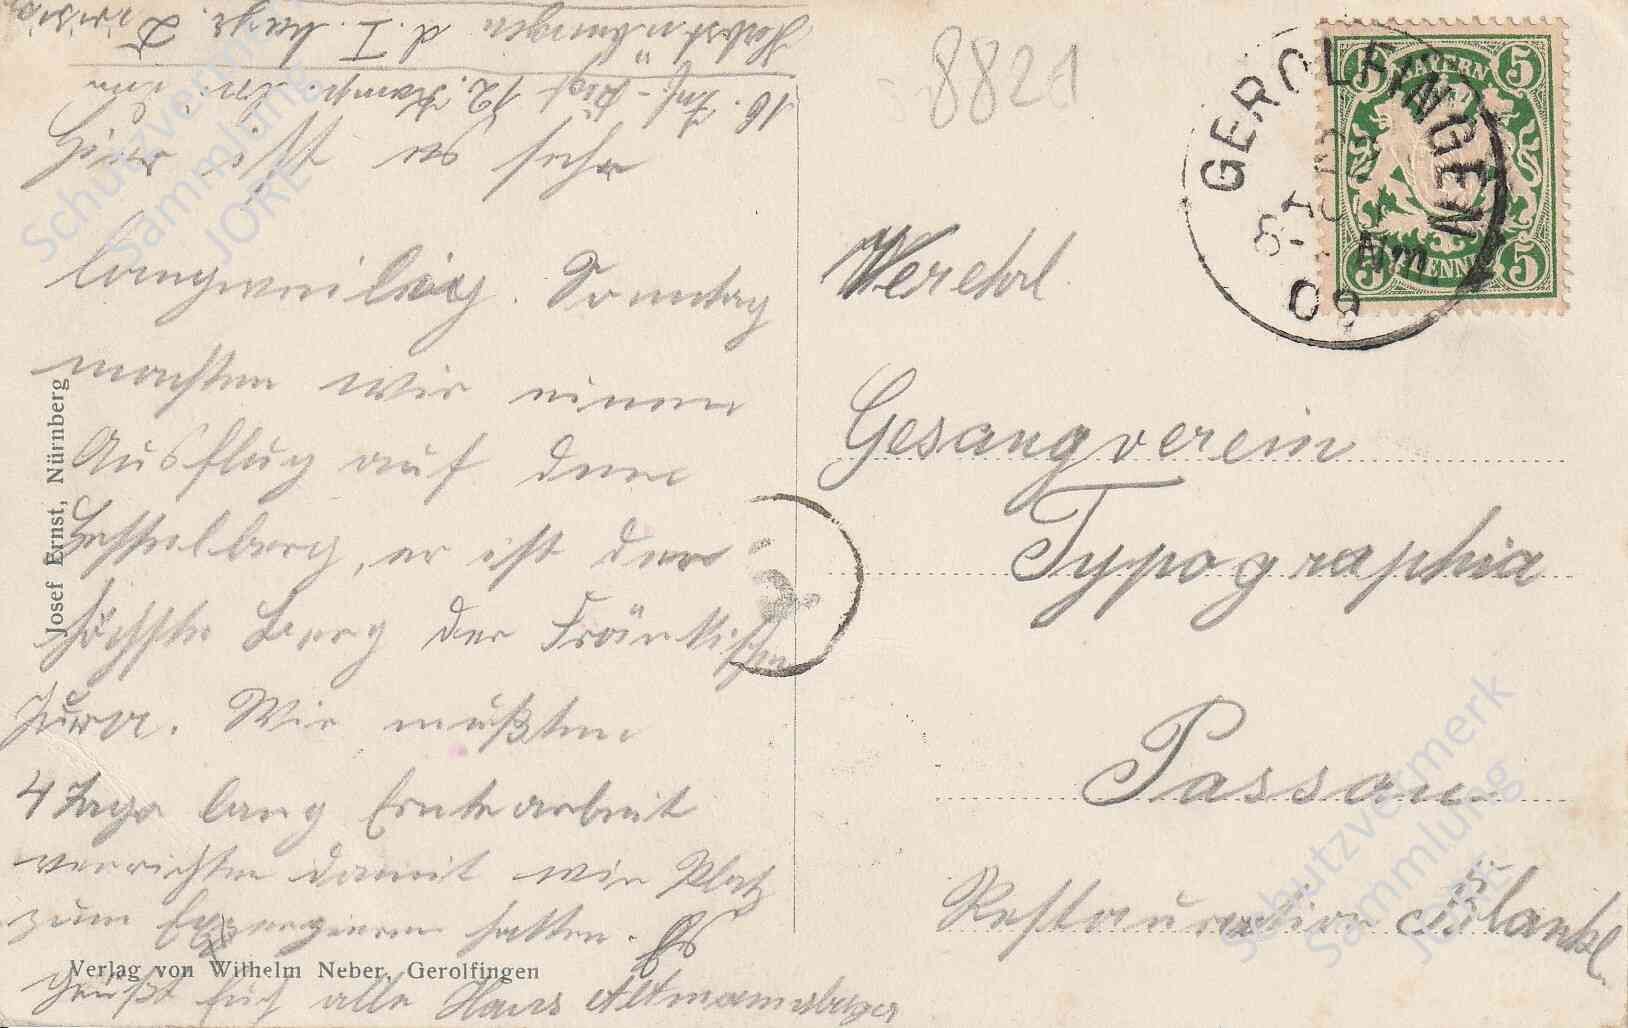 Herbstübungen d. I. bayr. Division
16. Inf.-Rgt 12. Komp.
Hier ist es sehr
langweilig. Sonntag
machten wir einen
Ausflug auf den
Hesselberg, er ist der
höchste Berg der Fränkischen
Jura. Wir mußten
4 Tage lang Erntearbeit
verrichten damit wir Platz
zum Exerzieren hatten. Es
grüßt Euch alle Hans Altmannsberger
Josef Ernst, Nürnberg
Verlag von Wilhelm Neber, Gerolfingen
8821
GEROLFINGEN
Nm
09
BAYERN
5 5
5 PFENNIG 5
Verehrl.
Gesangverein
Typographia
Passau
Restauration
Schutzvermerk
Sammlung
JORE
Schutzvermerk
Sammlung
JORE